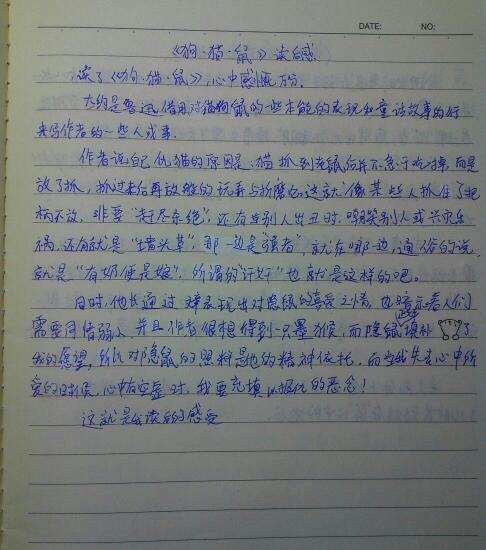 DATE:    NO:
《狗·猫·鼠》读后感
读了《狗·猫·鼠》,心中感慨万分.
大约是鲁迅借用对猫狗鼠的一些本能的表现和童话故事的行
来写作者的一些人或事.
作者说自己仇猫的原因是:猫抓到老鼠后并不急于吃掉,而是
放了抓,抓过来后再放般的玩弄与折磨.这就像某些人抓住了把
柄不放,非要“赶尽杀绝”.还有当别人出丑时,嘲笑别人或兴灾乐
祸.还有就是“墙头草”,那一边是“强者”,就在哪一边,通俗的说,
就是“有奶便是娘”.所谓的 也就是这样的吧.
同时,他也通过 表现出对隐鼠的喜爱之情,也暗示着人们
需要同情弱小,并且作者很想得到一只墨猴,而隐鼠填补 了
他的愿望,所以对隐鼠的照料是他的精神依托,而当我失去心中所
爱的时候,心中有空虚时,我要充填以报仇的恶念!
这就是我读后的感受